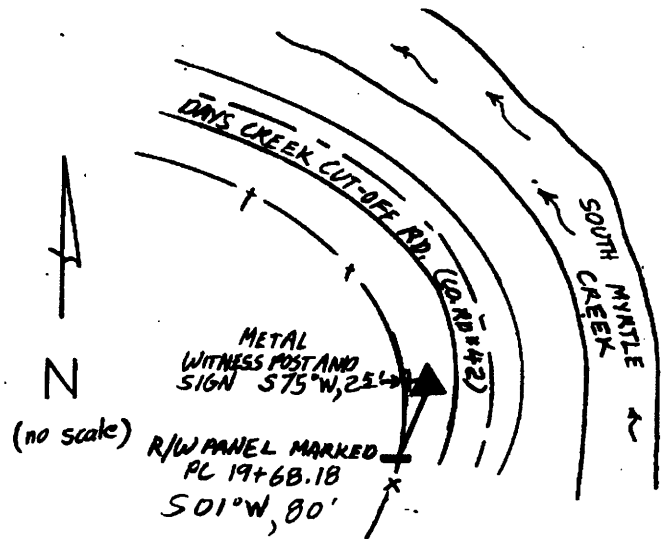 DAYS CREEK CUT-OFF RD. (CO.RD#42)
SOUTH MYRTLE
CREEK
METAL
WITNESS POST AND
SIGN S75°W, 25'
N
(no scale)
R/W PANEL MARKED
PC 19+68.18
S01°W, 80'